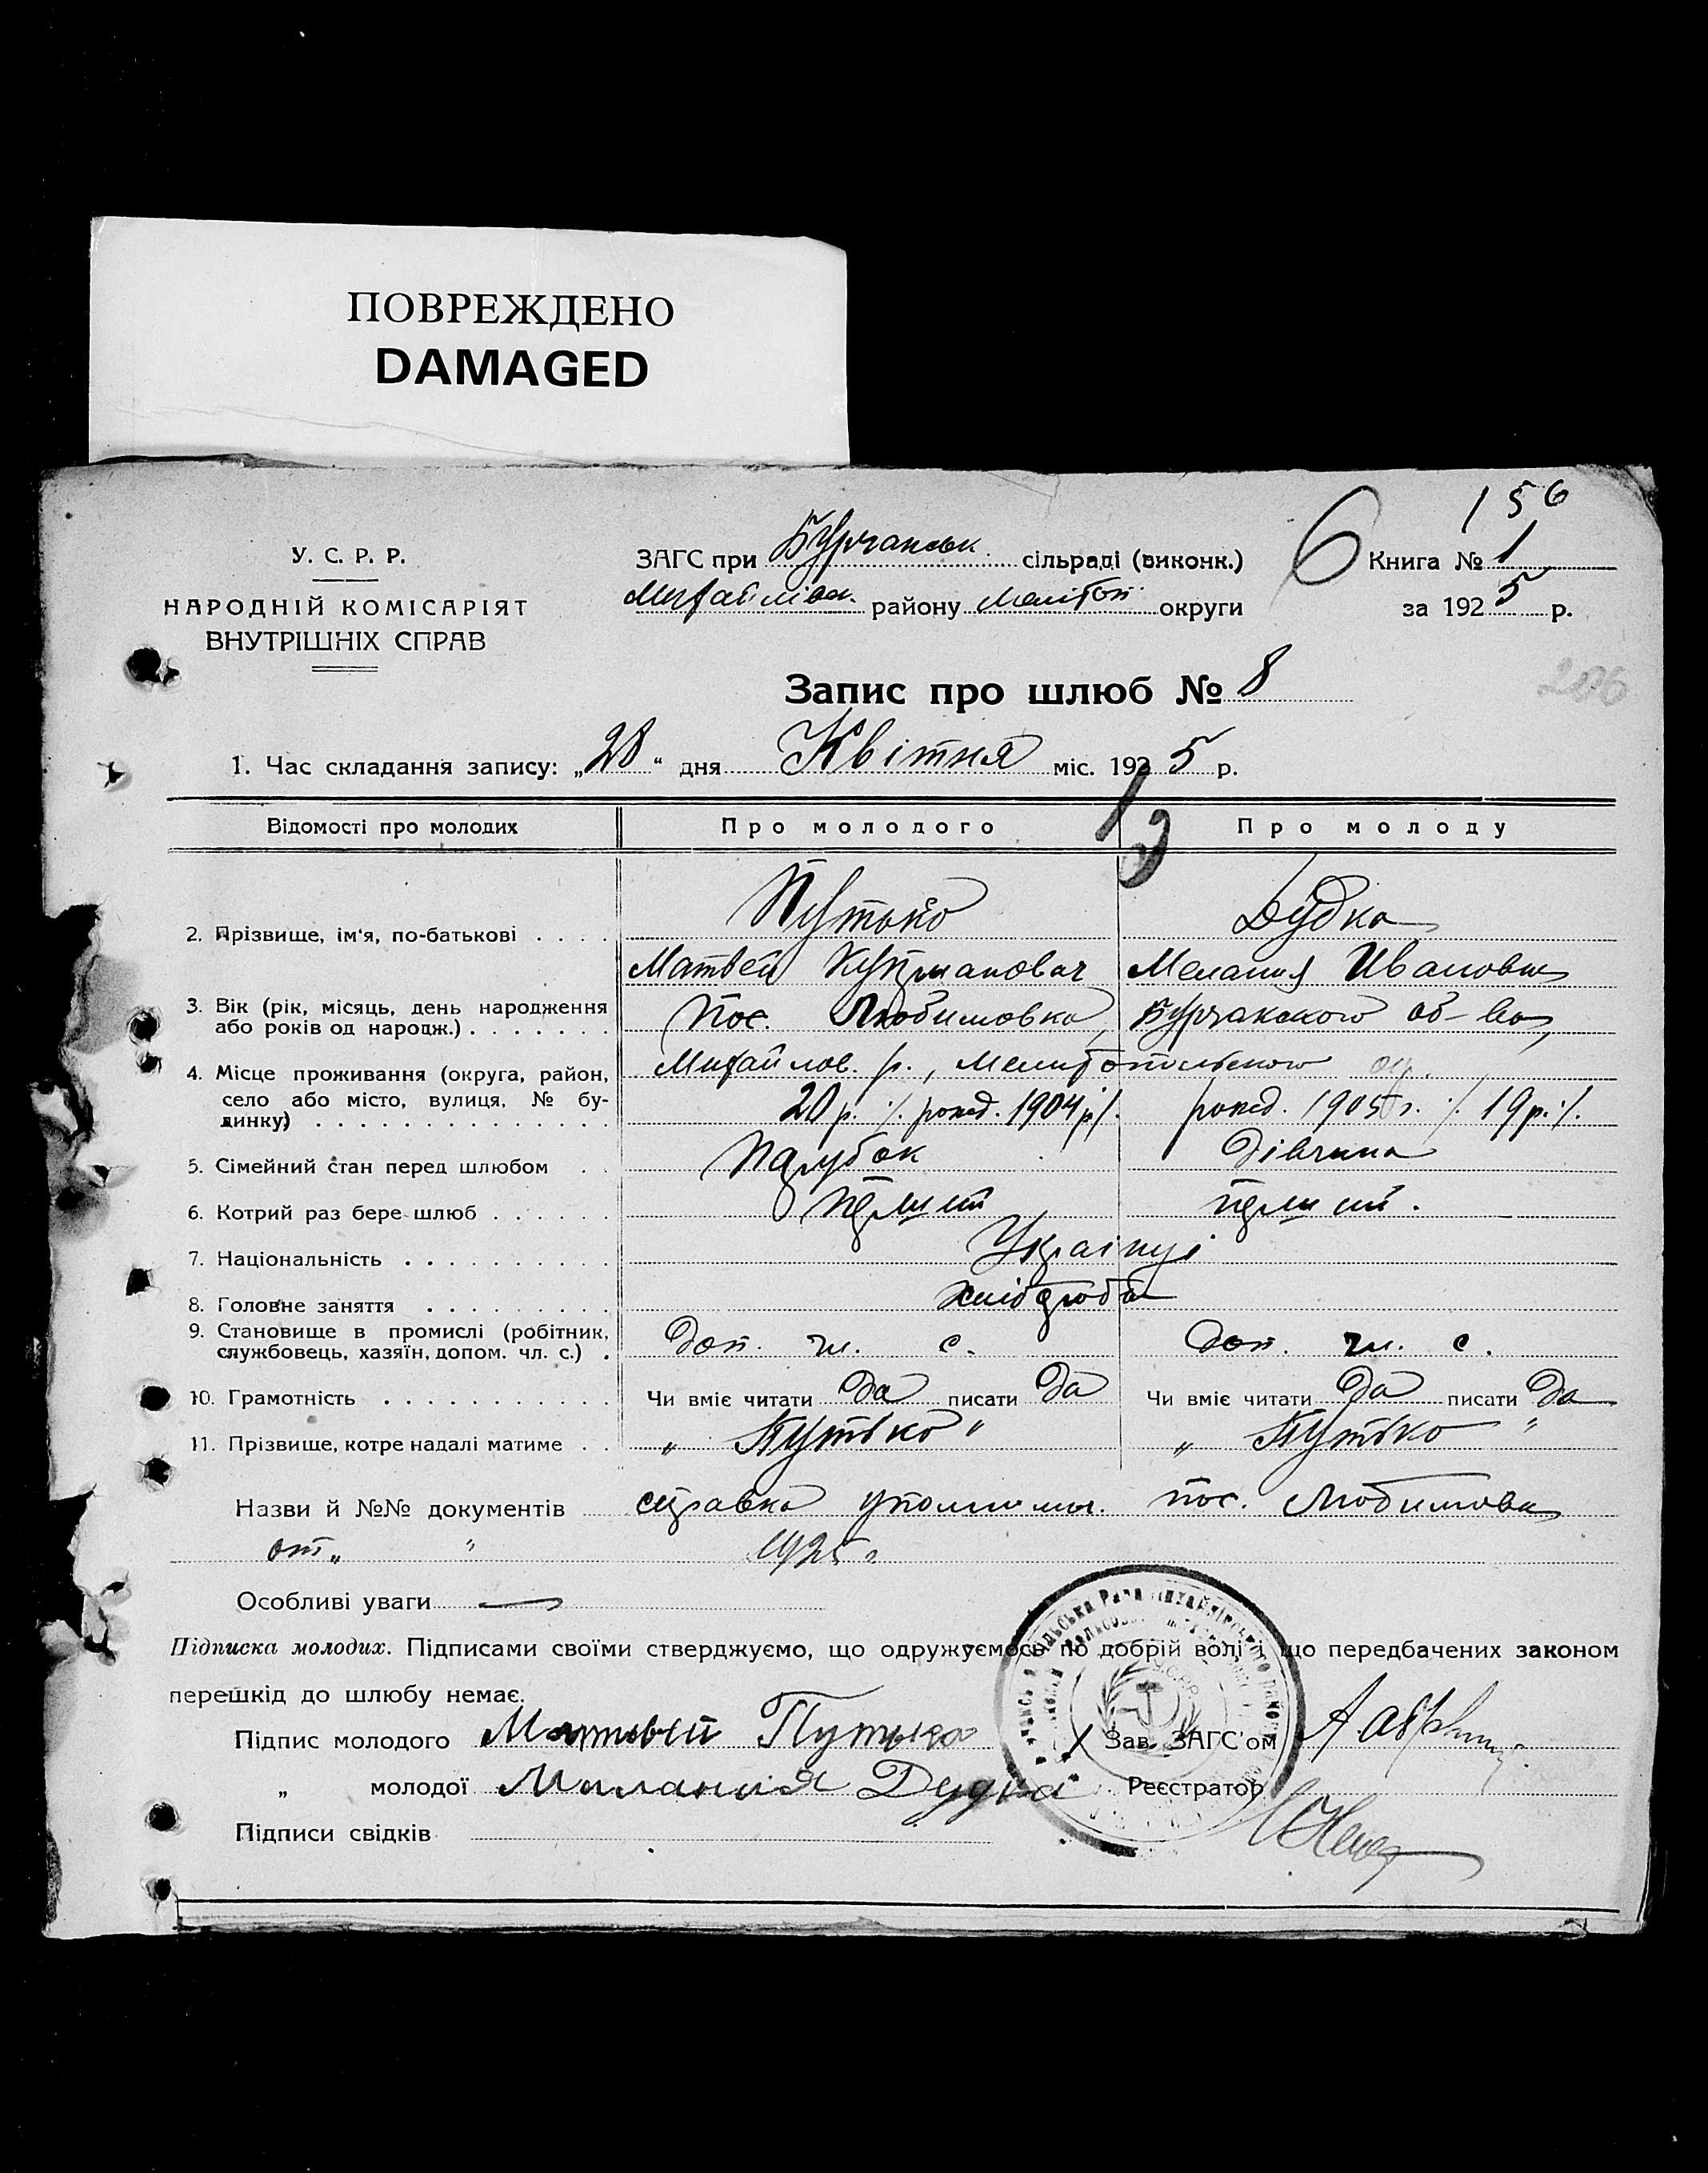 ПОВРЕЖДЕНО
DAMAGED
156
У. С. Р. Р.
НАРОДНІЙ КОМІСАРІЯТ
ВНУТРІШНІХ СПРАВ
ЗАГС при Бурчанськ. сільраді (виконк.)
Михайлівск. району Меліточ. округи
6 Книга № 1
за 1925 р.
206
Запис про шлюб № 8
1. Час складання запису: „28“ дня Квітня міс. 1925 р.
13
Відомості про молодих Про молодого Про молоду
2. Прізвище, ім'я, по-батькові Путько Дудка
Матвей Меланія Ивановна
3. Вік (рік, місяць, день народження або років од народж.) Пос. Любимовка, Бурчакского об-ва,
4. Місце проживання (округа, район, село або місто, вулиця, № будинку) Михайлов. р., Мелитопольского окр.
20 р. ./. рожд. 1904 р./. рожд. 1905 г. ./. 19 р. ./.
5. Сімейний стан перед шлюбом Парубок Дівчина
6. Котрий раз бере шлюб перший перший.
7. Національність Українці
8. Головне заняття хлібороби
9. Становище в промислі (робітник, службовець, хазяїн, допом. чл. с.) Доп. чл. с. Доп. чл. с.
10. Грамотність Чи вміє читати Да писати Да Чи вміє читати Да писати Да
11. Прізвище, котре надалі матиме „Путько" „Путько"
Назви й №№ документів справка уполномоч. пос. Любимовки
от „ " 1925 г.
Особливі уваги —
Підписка молодих. Підписами своїми стверджуємо, що одружуємось по добрій волі і що передбачених законом
перешкід до шлюбу немає.
Підпис молодого Матвей Путько Зав. ЗАГС'ом
„ молодої Миланія Дудка Реєстратор
Підписи свідків